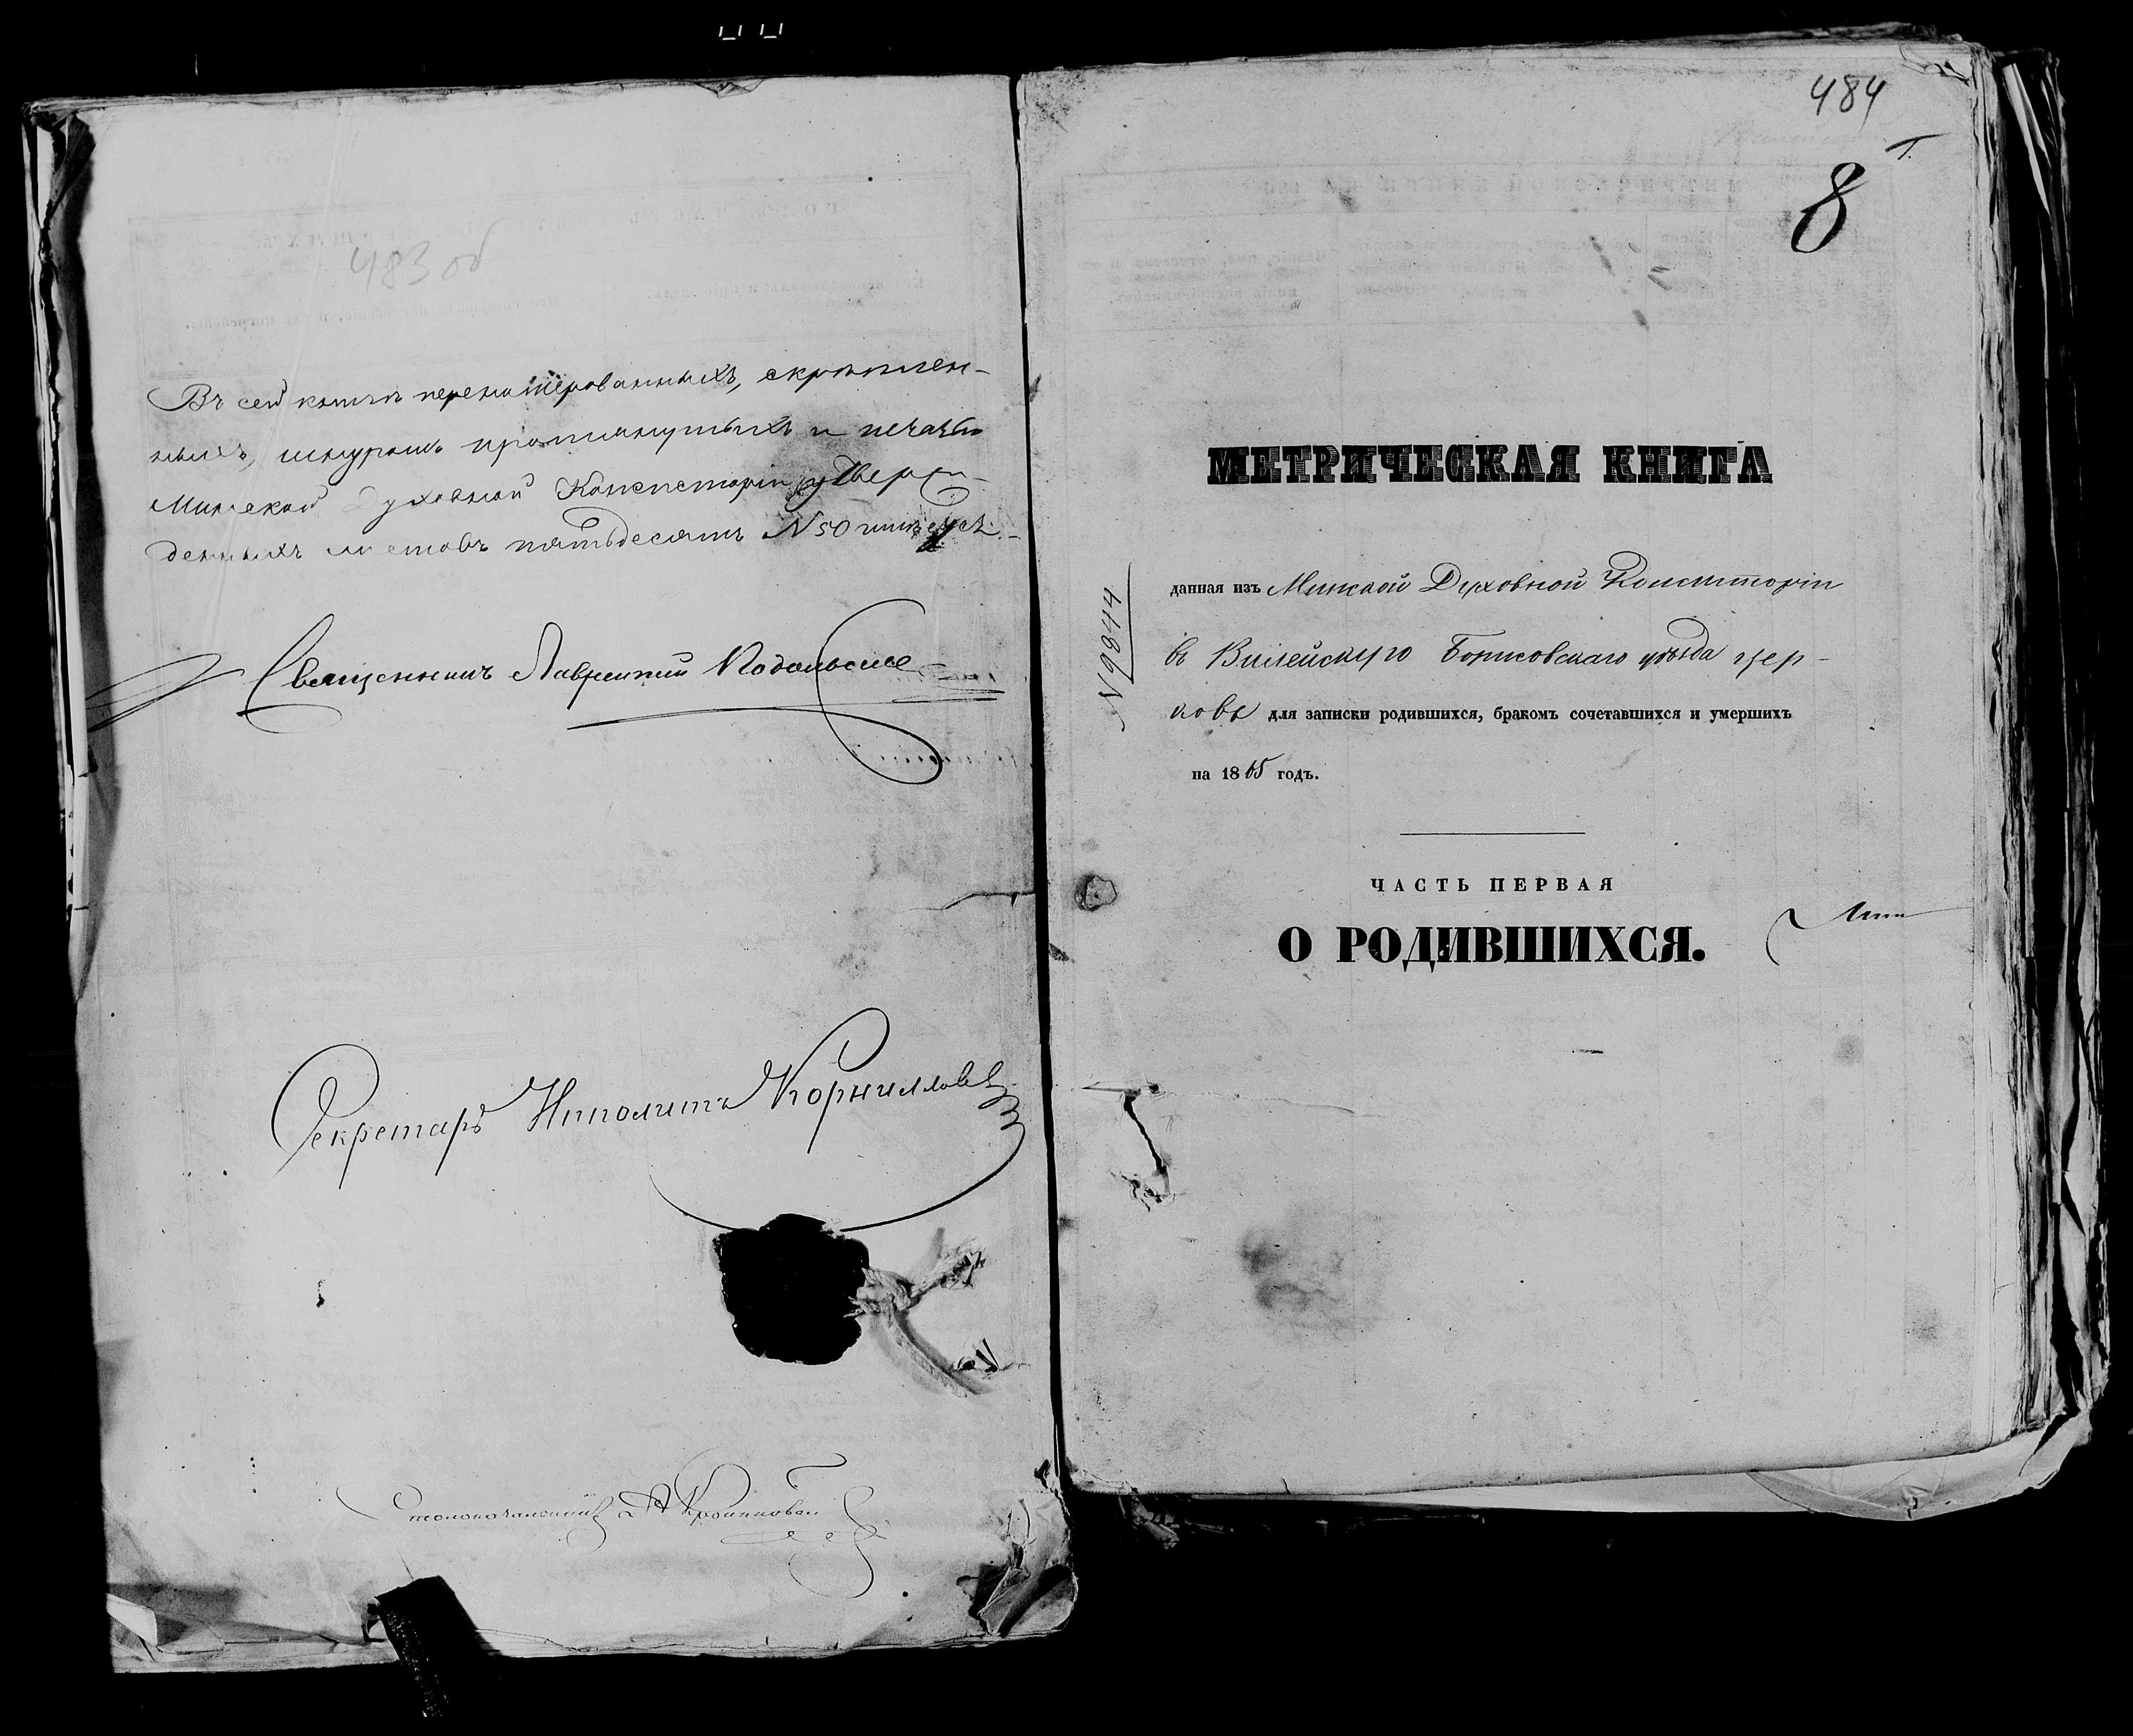 483 об
Въ сей книгѣ перенумерованныхъ, скрѣплен-
ныхъ, шнуромъ протянутыхъ и печатью
Минской Духовной Консисторіи утверж-
денныхъ листовъ пятьдесятъ N 50
Священникъ Лаврентій Подольскій
Секретарь Ипполитъ Корниловъ
Столоначальникъ
484
8
МЕТРИЧЕСКАЯ КНИГА
N 9844
данная изъ Минской Духовной Консисторіи
въ Вилейскую Борисовскаго уѣзда цер-
ковь для записки родившихся, бракомъ сочетавшихся и умершихъ
на 1865 годъ.
ЧАСТЬ ПЕРВАЯ
О РОДИВШИХСЯ.